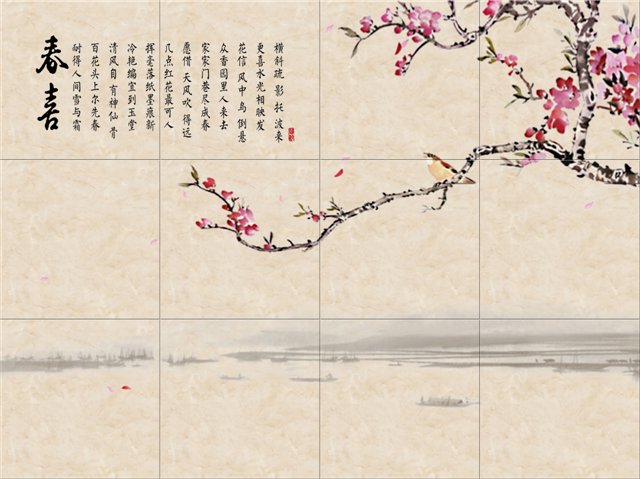 春喜
耐得人间雪与霜
百花头上尔先春
清风自有神仙骨
冷艳编宜到玉堂
挥毫落纸墨痕新
几点红花最可人
愿借天风吹得远
家家门巷尽成春
众香园里人来去
花信风中鸟倒悬
更喜水光相映发
横斜疏影托波来